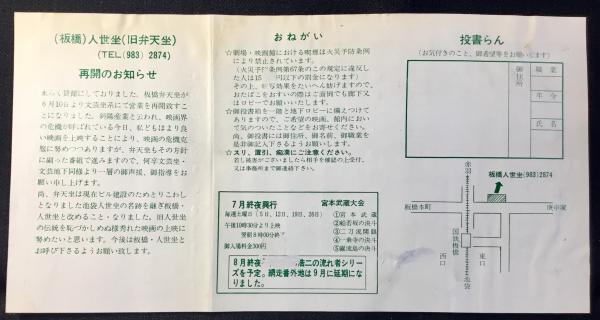 (板橋)人世坐(旧弁天坐)
(TEL(983) 2874)
再開のお知らせ
永らく貸館にしておりました、板橋弁天坐が
6月10日より文芸坐系にて営業を再開致すこ
とになりました。斜陽産業と云われ、映画界
の危機が呼ばれている今日、私どもはより良
い映画を上映することにより、映画の危機克
服に努めつつありますが、弁天坐もその方針
に副った番組で進みますので、何卒文芸坐・
文芸地下同様より一層の御声援、御指導をお
願い申し上げます。
尚、弁天坐は現在ビル建設のためとりこわし
となりました池袋人世坐の名跡を継ぎ板橋・
人世坐と改めること・なりました。旧人世坐
の伝統を恥づかしめぬ様秀れた映画の上映に
努めたいと思います。今後は板橋・人世坐と
お呼び下さるようお願い致します。
おねがい
☆劇場・映画館における喫煙は火災予防条例
により禁止されています。
(火災予防条例第67条のこの規定に違反し
た人は15 円以下の罰金になります)
その上、映写効果をたいへん妨げますので、
おたばこをおすいの際はご面倒でも廊下又
はロビーでお願いいたします。
☆御投書箱を一階と地下ロビーに備えつけて
ありますので、ご希望の映画、館内におい
て気のついたことなどをお寄せください。
尚、御投書には御住所、御名前、御職業を
是非御記入下さるようお願いします。
☆スリ、置引、痴漢にご注意ください。
若し被害がございましたら相手を確認の上受付、
又は事務所まで御連絡下さい。
7月終夜興行
宮本武蔵大会
毎週土曜日(5日、12日、19日、26日)
午後10時30分より上映
翌朝8時00分終了
御入場料金300円
①宮本武蔵
②般若坂の決斗
③二刀流開眼
④一乗寺の決斗
⑤巌流島の決斗
8月終夜 浩二の流れ者シリー
ズを予定。網走番外地は9月に延期にな
りました。
投書らん
(お気付きのこと、御希望等をお願いします)
御住所
職業
年令
氏名
板橋人世坐(983)2874
赤羽
板橋本町
庚申塚
国鉄板橋
西口
東口
池袋